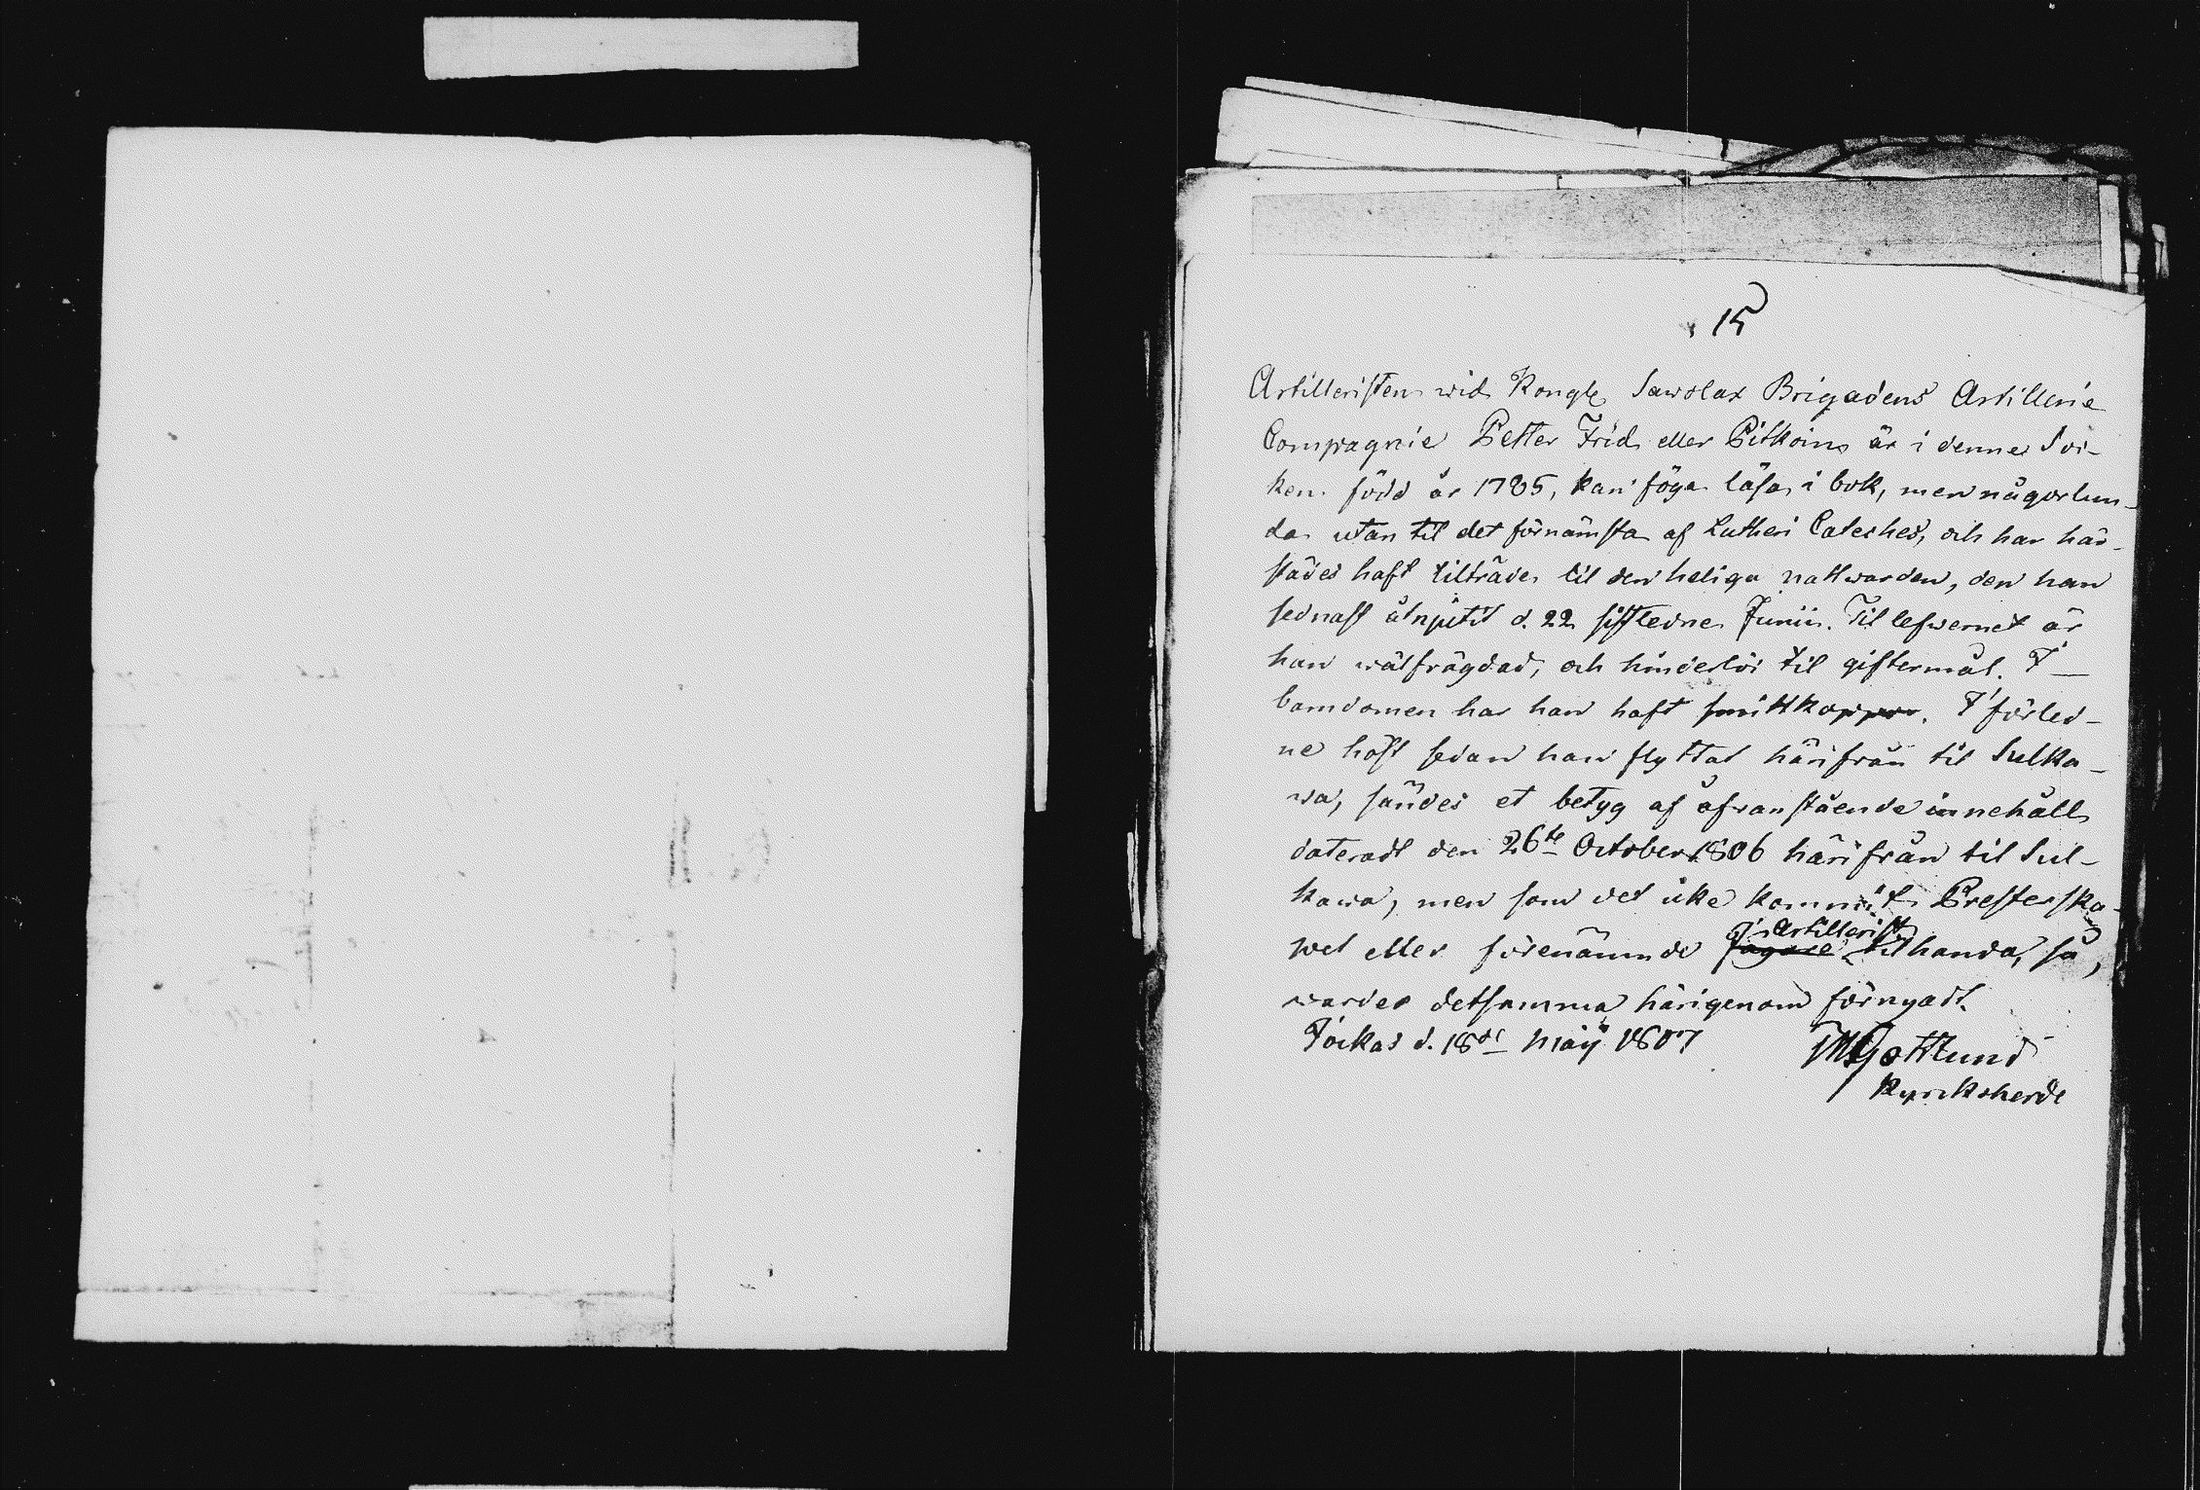 15
Artilleristen wid Kongl. Sawolax Brigadens Artillerie
Compagnie Petter Frid eller Pitkoin är i denne Soc-
ken född år 1785, kan föga läsa i bok, men någorlun-
da utan til det förnämsta af Lutheri Cateches, och har här-
städes haft tilträde til den heliga nattwarden, den han
sednast åtnjutit d. 22 sistledne Junii. Til lefwernet är
han wälfrägdad, och hinderlös til giftermål. I
barndomen har han haft smittkoppor. I förled-
ne höst sedan han flyttat härifrån til Sulka-
wa, sändes et betyg af ofwanstående innehåll
dateradt den 26te October 1806 härifrån til Sul-
kawa, men som det icke kommit Presterska-
pet eller förenämnde Jägare Artillerist tilhanda, så
warder detsamma härigenom förnyadt.
Jockas d. 18de Maij 1807 MGottlund
Kyrckoherde